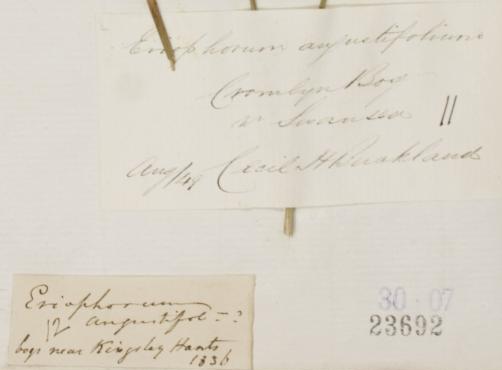 Eriophorum angustifolium
Cromlyn Bog
nr Swansea ||
Aug/49 Cecil H Buckland
Eriophorum
angustifol - ?
bogs near Kingsley Hants
1836
30 · 07
23692